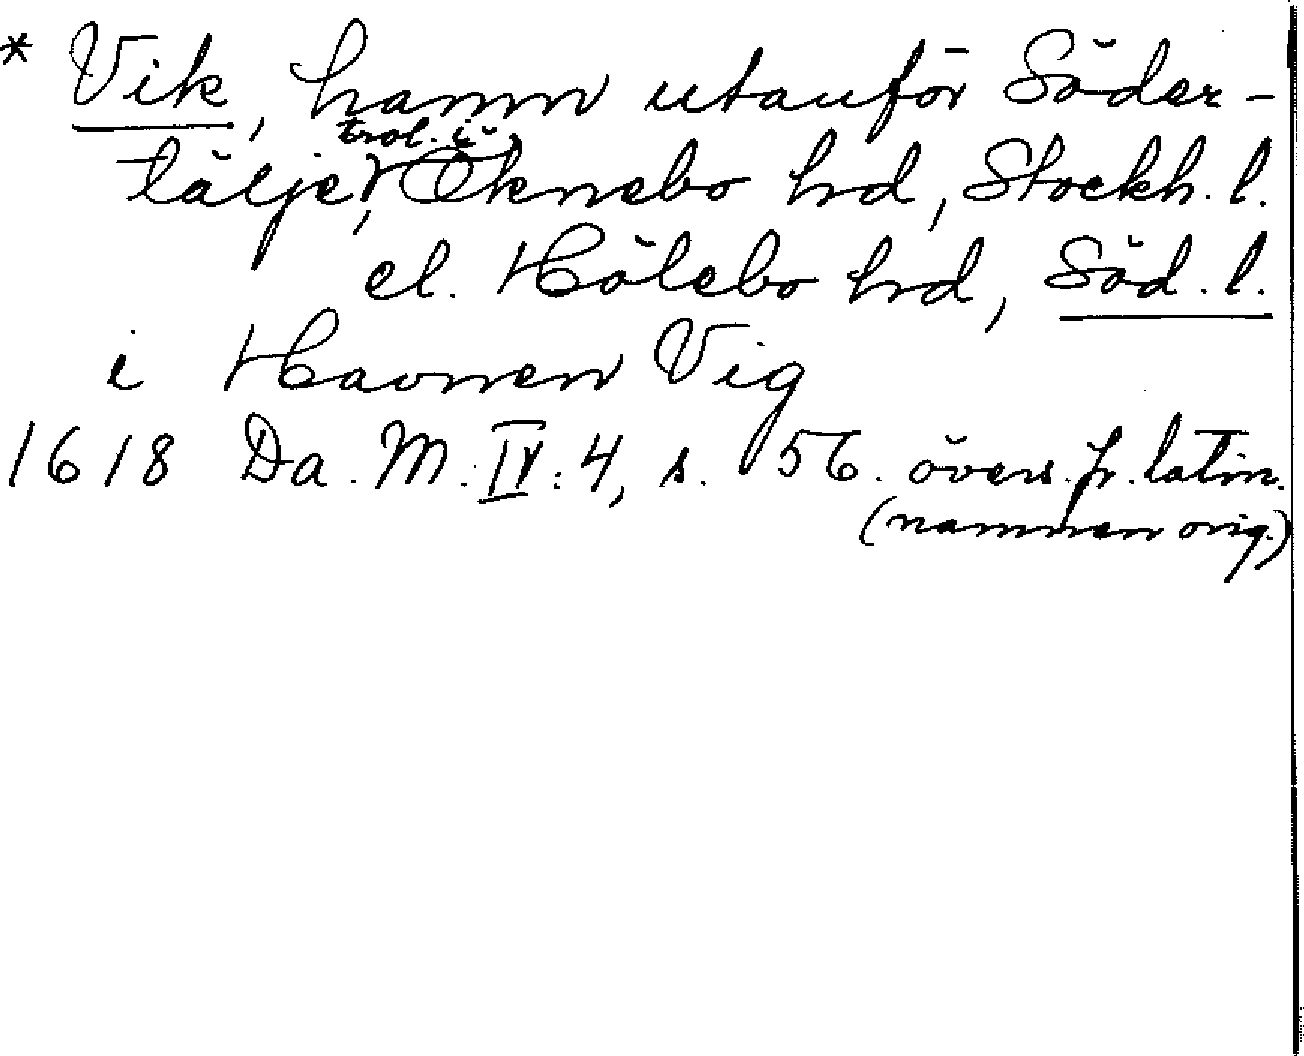 * Vik, hamn utanför Söder-
tälje, trol. i Öknebo hd, Stockh. l.
el. Hölebo hd, Söd. l.
i Havnen Vig
1618 Da. M. IV. 4, s. 56. övers. fr. latin.
(namnen orig.)